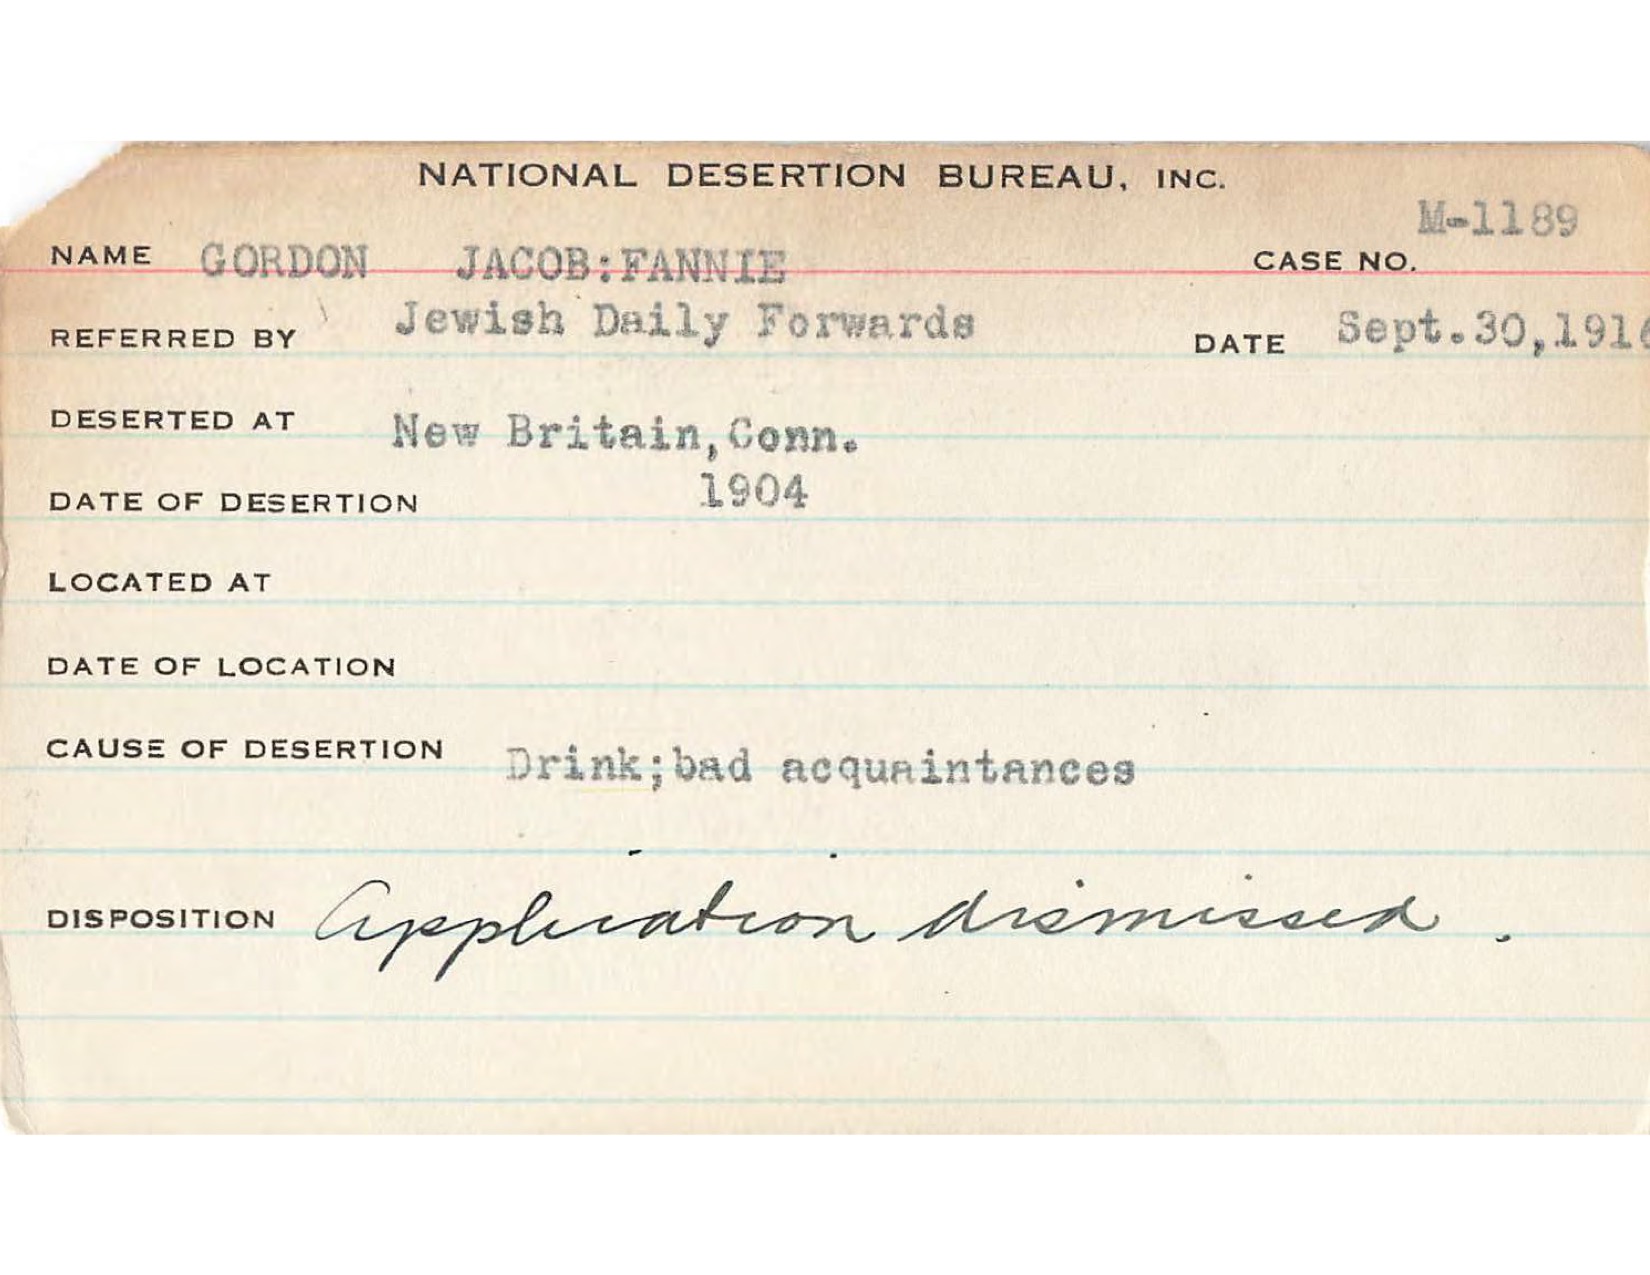 NATIONAL DESERTION BUREAU, INC.
M-1189
NAME GORDON JACOB:FANNIE CASE NO.
REFERRED BY Jewish Daily Forwards DATE Sept.30,1916
DESERTED AT New Britain,Conn.
DATE OF DESERTION 1904
LOCATED AT
DATE OF LOCATION
CAUSE OF DESERTION Drink;bad acquaintances
DISPOSITION Application dismissed.